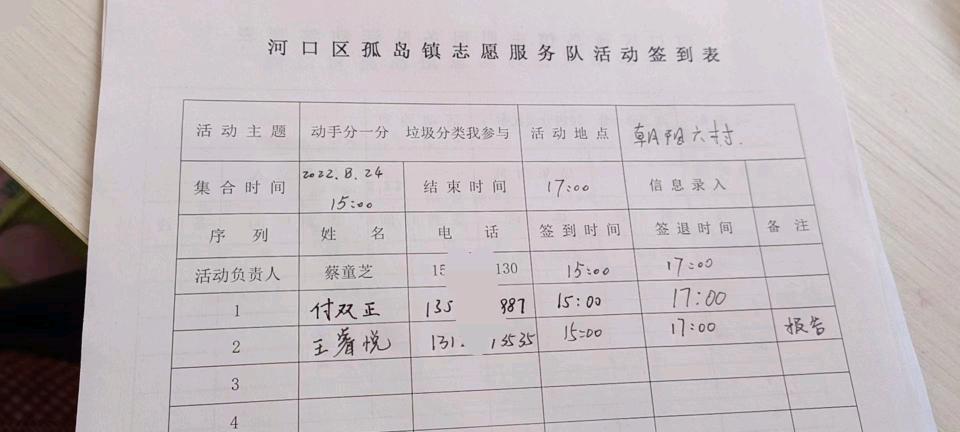 河口区孤岛镇志愿服务队活动签到表
活动主题 动手分一分 垃圾分类我参与 活动地点 朝阳六村.
集合时间 2022.8.24 15:00 结束时间 17:00 信息录入
序列 姓名 电话 签到时间 签退时间 备注
活动负责人 蔡童芝 15 130 15:00 17:00
1 付双正 135 987 15:00 17:00
2 王睿悦 131. 13535 15:00 17:00 报告
3
4